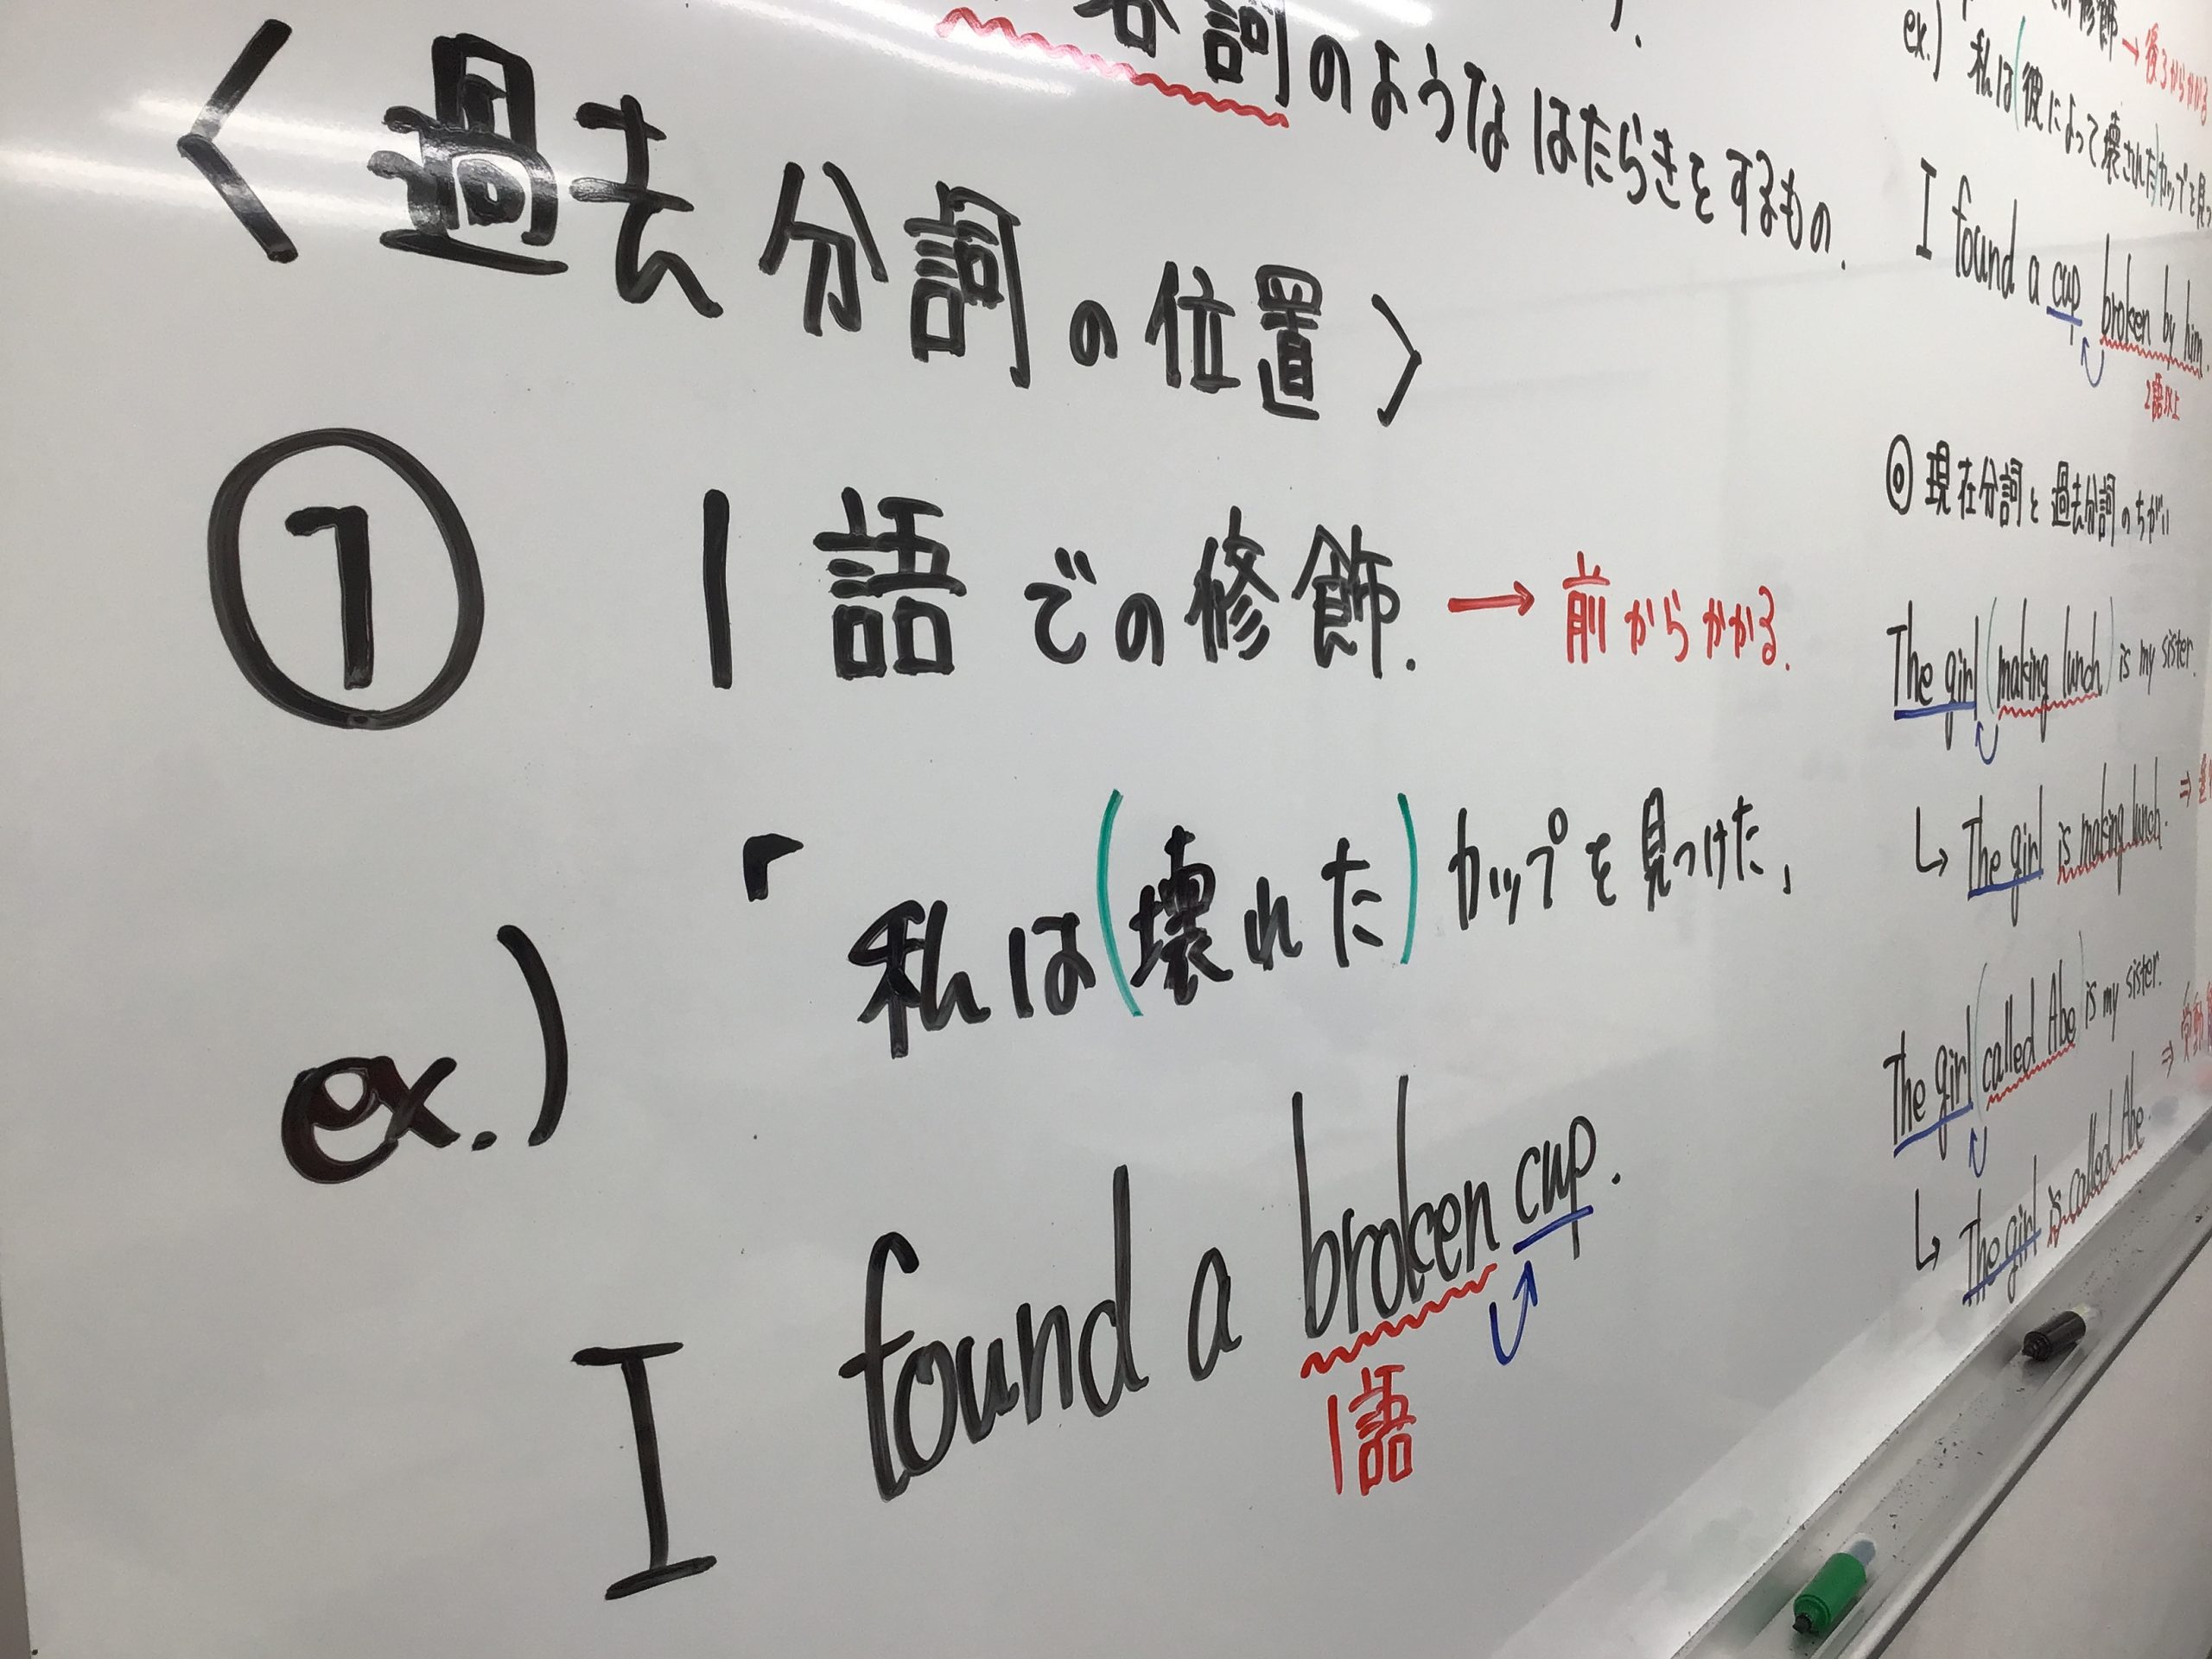 詞のようなはたらきをするもの.
<過去分詞の位置>
① 1語での修飾. → 前からかかる.
ex.) 「私は(壊れた)カップを見つけた」
I found a broken cup.
1語
修飾 → 後ろからかかる
ex.) 私は(彼によって壊された)カップを見つ
I found a cup broken by him.
2語以上
◎ 現在分詞と過去分詞のちがい
The girl (making lunch) is my sister.
↳ The girl is making lunch. ⇒
The girl (called Abe) is my sister.
↳ The girl is called Abe. ⇒